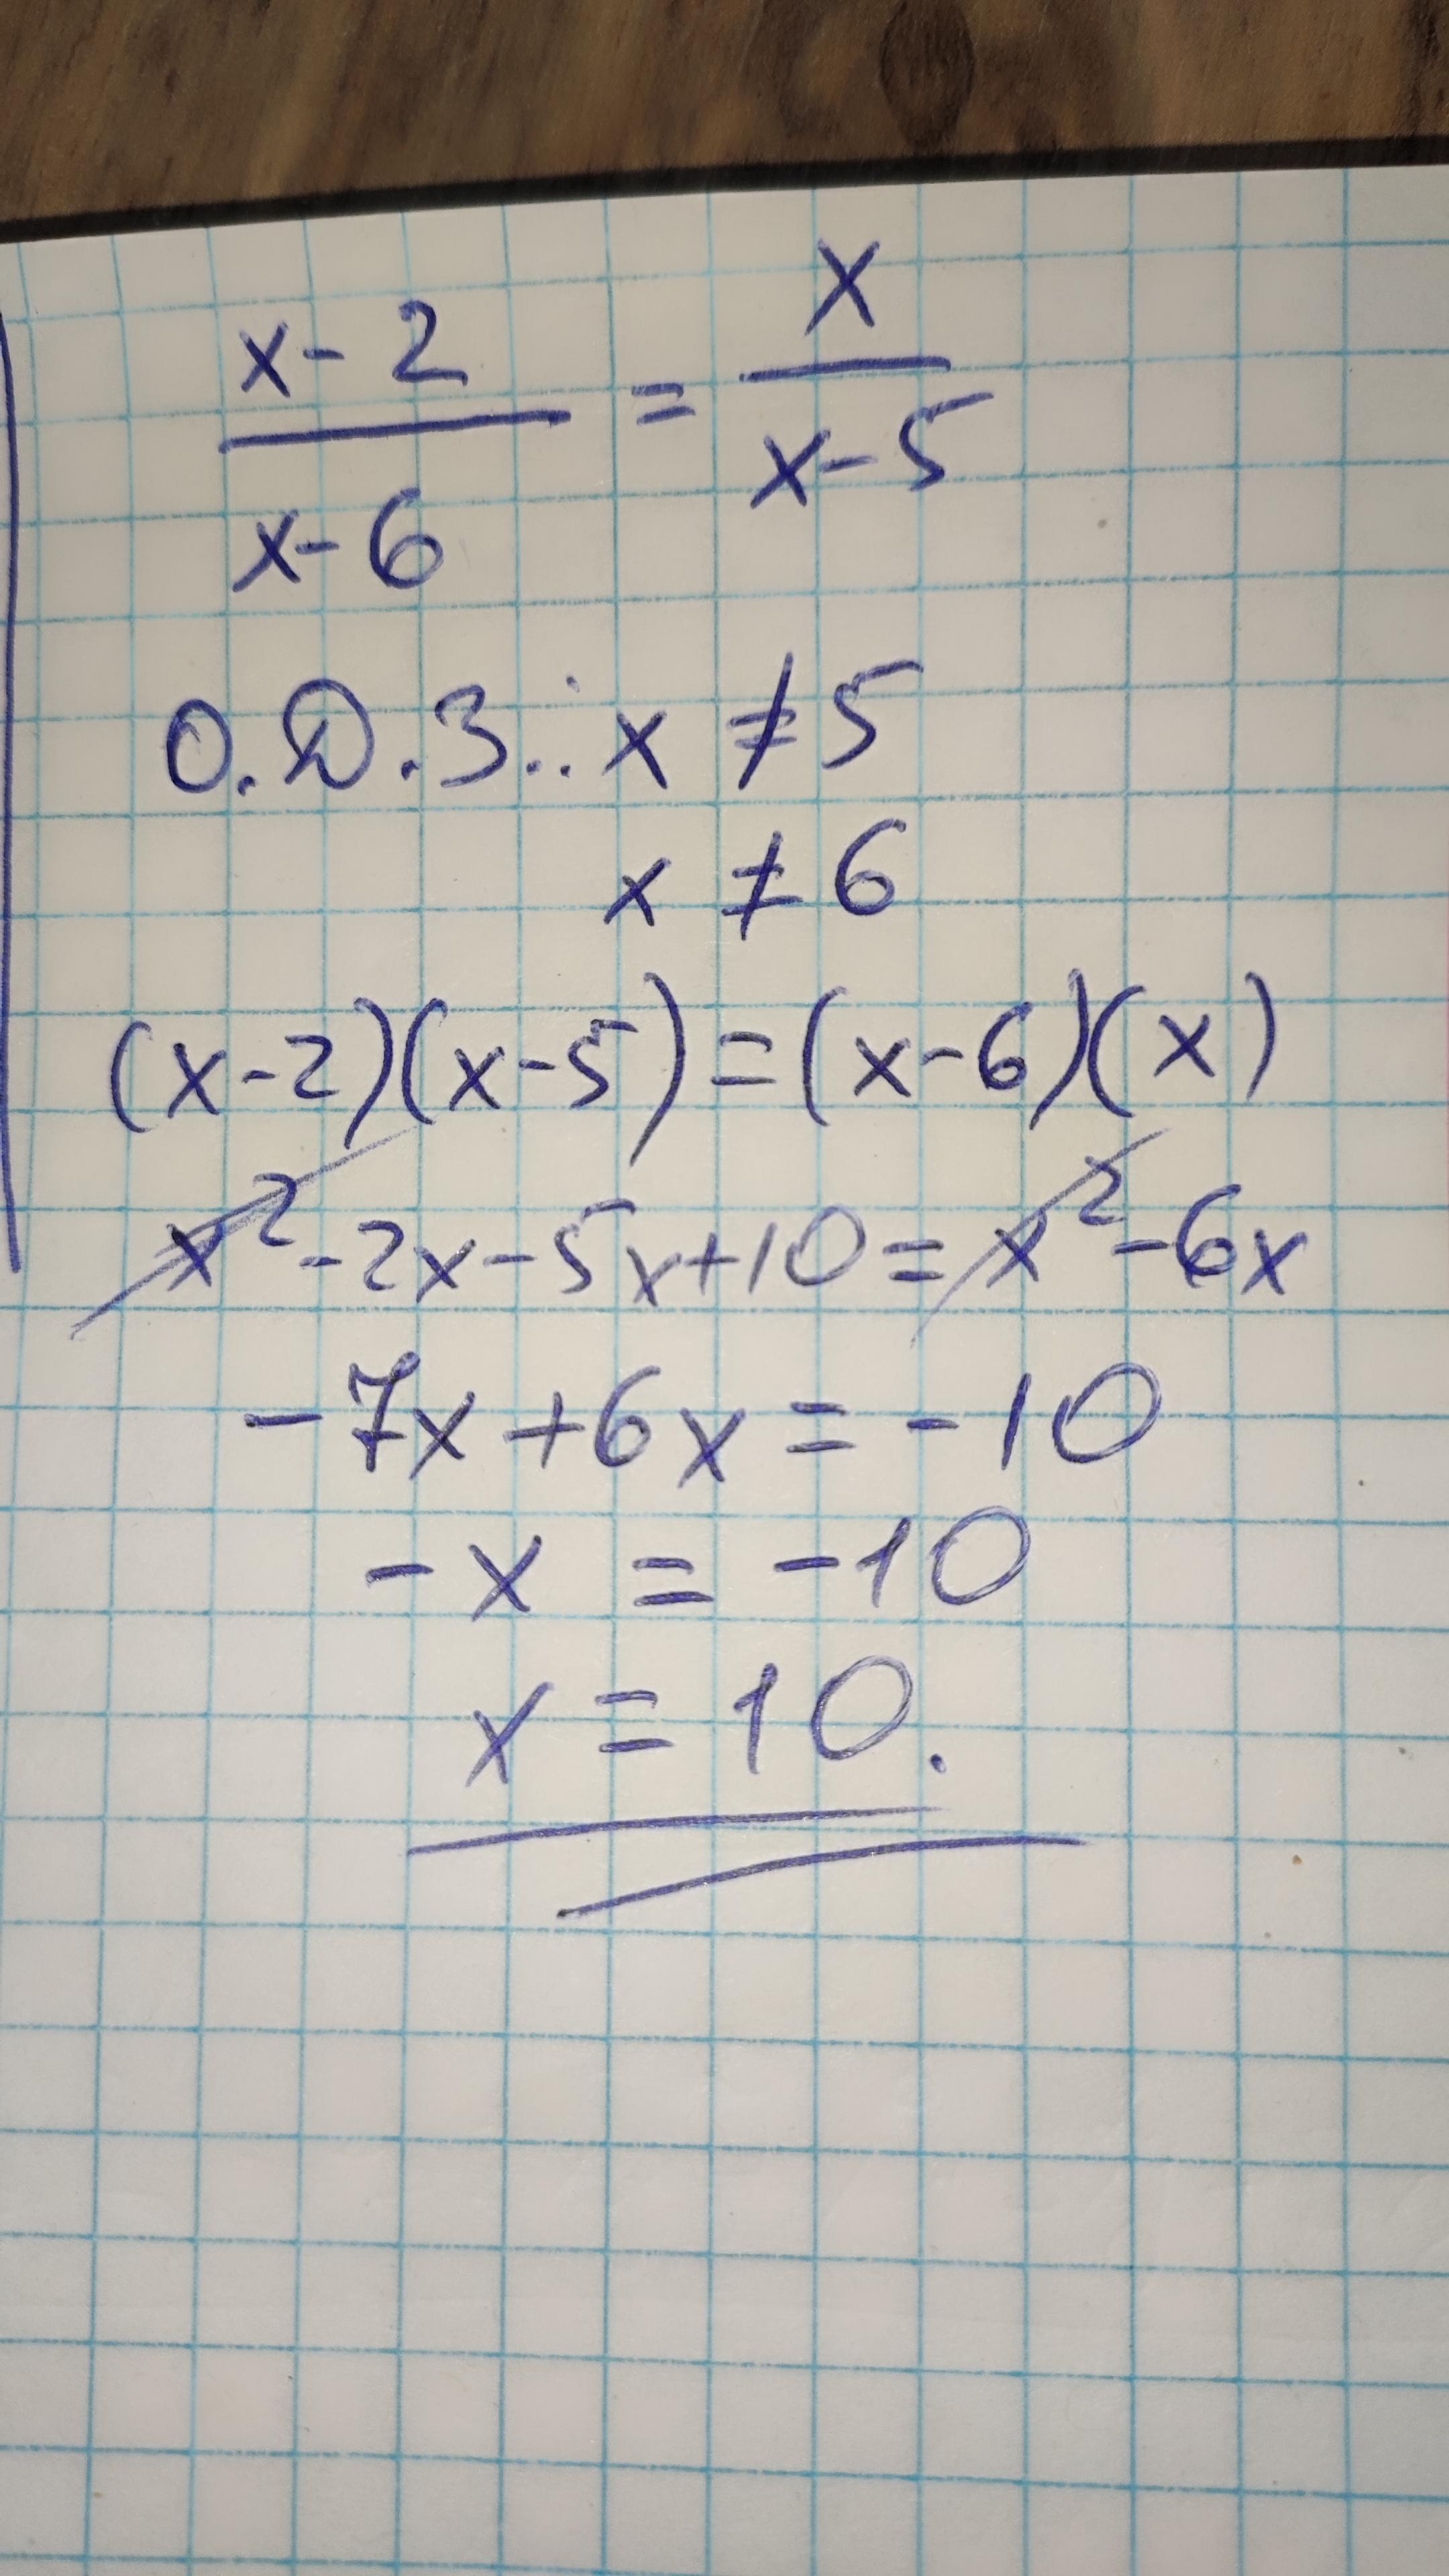 x-2/x-6 = x/x-5
О.Д.З.: x ≠ 5
x ≠ 6
(x-2)(x-5)=(x-6)(x)
x²-2x-5x+10=x²-6x
-7x+6x=-10
-x = -10
x = 10.